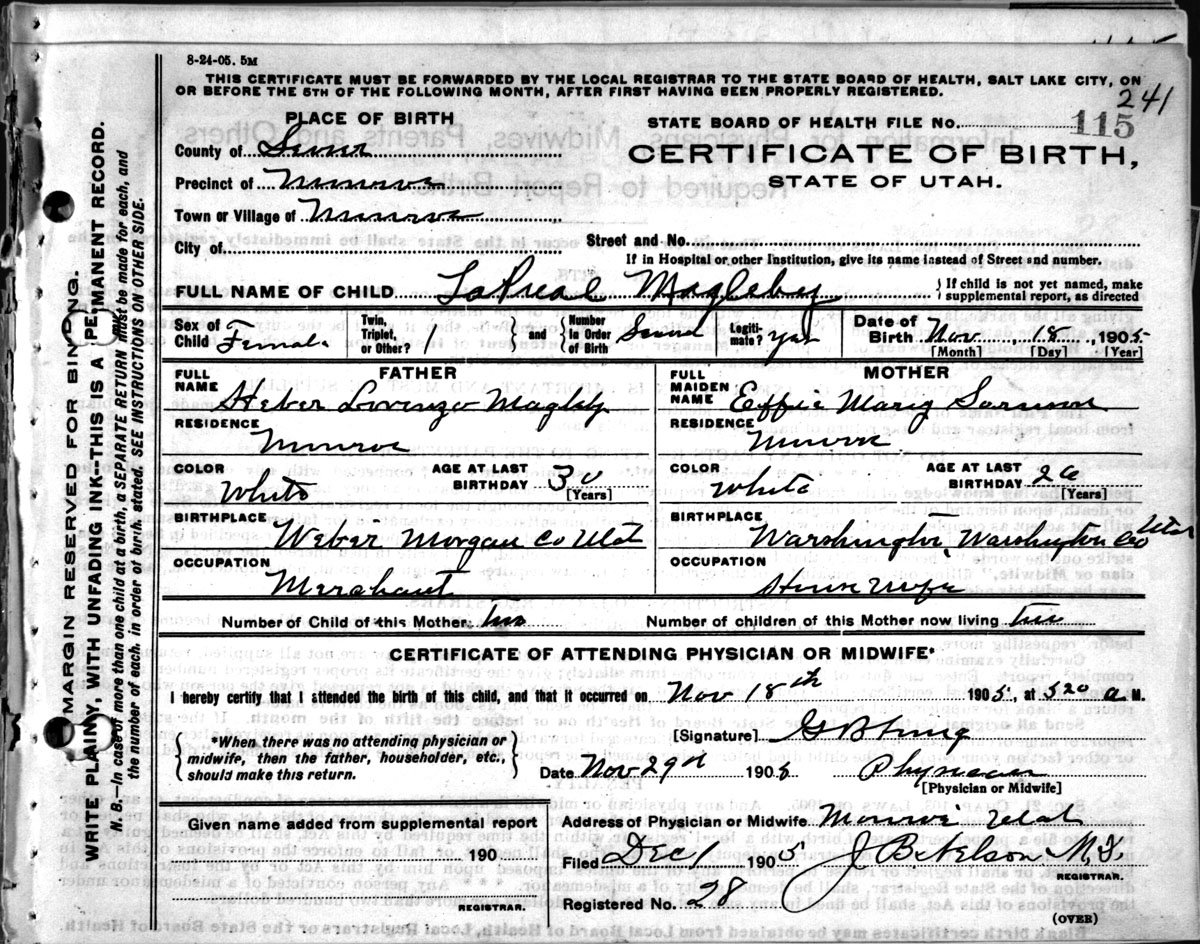 8-24-05. 5M
THIS CERTIFICATE MUST BE FORWARDED BY THE LOCAL REGISTRAR TO THE STATE BOARD OF HEALTH, SALT LAKE CITY, ON
OR BEFORE THE 5TH OF THE FOLLOWING MONTH, AFTER FIRST HAVING BEEN PROPERLY REGISTERED.
241
PLACE OF BIRTH
STATE BOARD OF HEALTH FILE No. 115
County of
CERTIFICATE OF BIRTH,
Precinct of Monroe
STATE OF UTAH.
Town or Village of Monroe
City of
Street and No.
If in Hospital or other Institution, give its name instead of Street and number.
FULL NAME OF CHILD LaPreal Magleby
} If child is not yet named, make
supplemental report, as directed
Sex of Child Female
Twin, Triplet, or Other? 1
} and { Number in Order of Birth
Legiti- mate? Yes
Date of Birth Nov, 18, 1905
[Month] [Day] [Year]
FATHER
MOTHER
FULL NAME Heber Lorenzo Magleby
FULL MAIDEN NAME Effie Mary
RESIDENCE Monroe
RESIDENCE Monroe
COLOR White
AGE AT LAST BIRTHDAY 30 [Years]
COLOR White
AGE AT LAST BIRTHDAY 26 [Years]
BIRTHPLACE Weber Morgan Co Utah
BIRTHPLACE Warshington, Warshington Co Utah
OCCUPATION Merchant
OCCUPATION House Wife
Number of Child of this Mother two
Number of children of this Mother now living two
CERTIFICATE OF ATTENDING PHYSICIAN OR MIDWIFE*
I hereby certify that I attended the birth of this child, and that it occurred on Nov 18th 1905, at 520 a M.
[Signature]
{ *When there was no attending physician or
midwife, then the father, householder, etc.,
should make this return. }
Date Nov 29 190 Physician
[Physician or Midwife]
Given name added from supplemental report
Address of Physician or Midwife Monroe Utah
190
Filed Dec 1 1905 J B Nelson
REGISTRAR.
REGISTRAR.
Registered No. 28
(OVER)
MARGIN RESERVED FOR BINDING.
WRITE PLAINLY, WITH UNFADING INK--THIS IS A PERMANENT RECORD.
N. B.—In case of more than one child at a birth, a SEPARATE RETURN must be made for each, and
the number of each, in order of birth, stated. SEE INSTRUCTIONS ON OTHER SIDE.